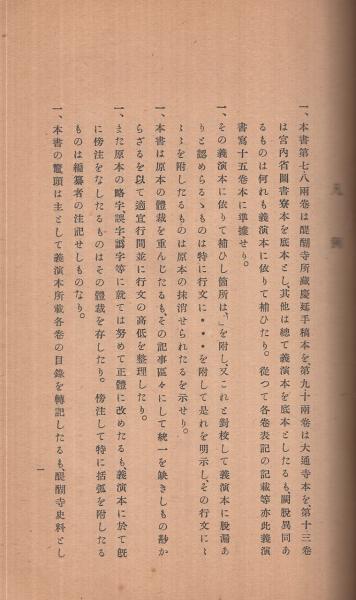 一、本書第七八兩卷は醍醐寺所藏慶延手稿本を、第九十兩卷は大通寺本を、第十三卷
は宮內省圖書寮本を底本とし、其他は總て義演本を底本としたるも、闕脫異同あ
るものは何れも義演本に依りて補ひたり。從つて各卷表記の記載等亦此義演
書寫十五卷本に準據せり。
一、その義演本に依りて補ひし箇所は、」を附し、又これと對校して義演本に脫漏あ
りと認めらるゝものは特に行文に・・・を附して是れを明示し、その行文にミ
ミを附したるものは原本の抹消せられたるを示せり。
一、本書は原本の體裁を重んじたるも、その記事區々にして統一を缺きしもの尠か
らざるを以て適宜行間並に行文の高低を整理したり。
一、また原本の略字誤字、譌字等に就ては努めて正體に改めたるも、義演本に於て旣
に傍注をなしたるものはその體裁を存したり。傍注して特に括弧を附したる
ものは編纂者の注記せしものなり。
一、本書の鼇頭は主として義演本所載各卷の目錄を轉記したるも、醍醐寺史料とし
一